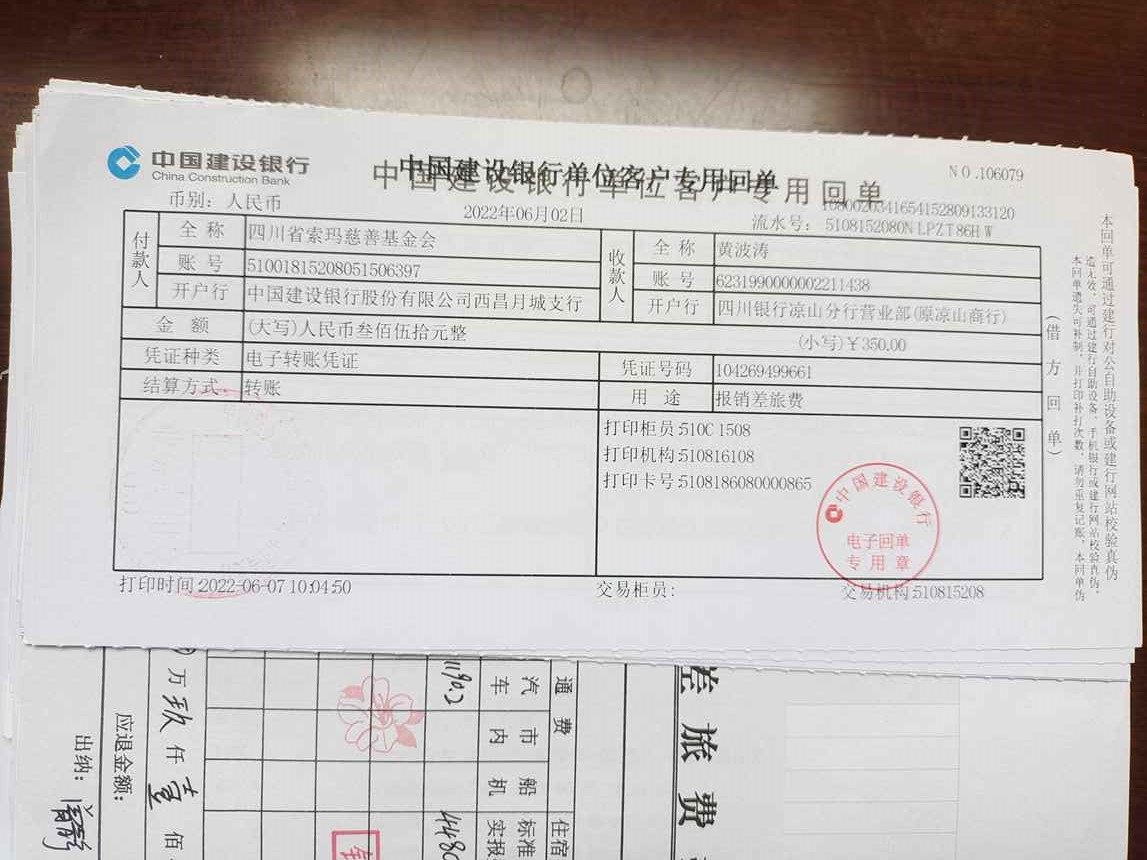 中国建设银行
China Construction Bank
中国建设银行单位客户专用回单
中国建设银行单位客户专用回单
NO.106079
币别：人民币
2022年06月02日
流水号：
5108152080NLPZT86HW
付款人
全称 四川省索玛慈善基金会
账号 51001815208051506397
开户行 中国建设银行股份有限公司西昌月城支行
收款人
全称 黄波涛
账号 6231990000002211438
开户行 四川银行凉山分行营业部(原凉山商行)
金额 (大写)人民币叁佰伍拾元整 (小写)￥350.00
凭证种类 电子转账凭证 凭证号码 104269499661
结算方式 转账 用途 报销差旅费
打印柜员:510C1508
打印机构:510816108
打印卡号:5108186080000865
中国建设银行
电子回单
专用章
打印时间:2022-06-07 10:04:50 交易柜员: 交易机构:510815208
(借方回单)
本回单可通过建行对公自助设备或建行网站校验真伪
差旅费
通费
汽车
市内
船机
住宿
标准
实报
1190.2
万玖仟壹佰
应退金额：
出纳：